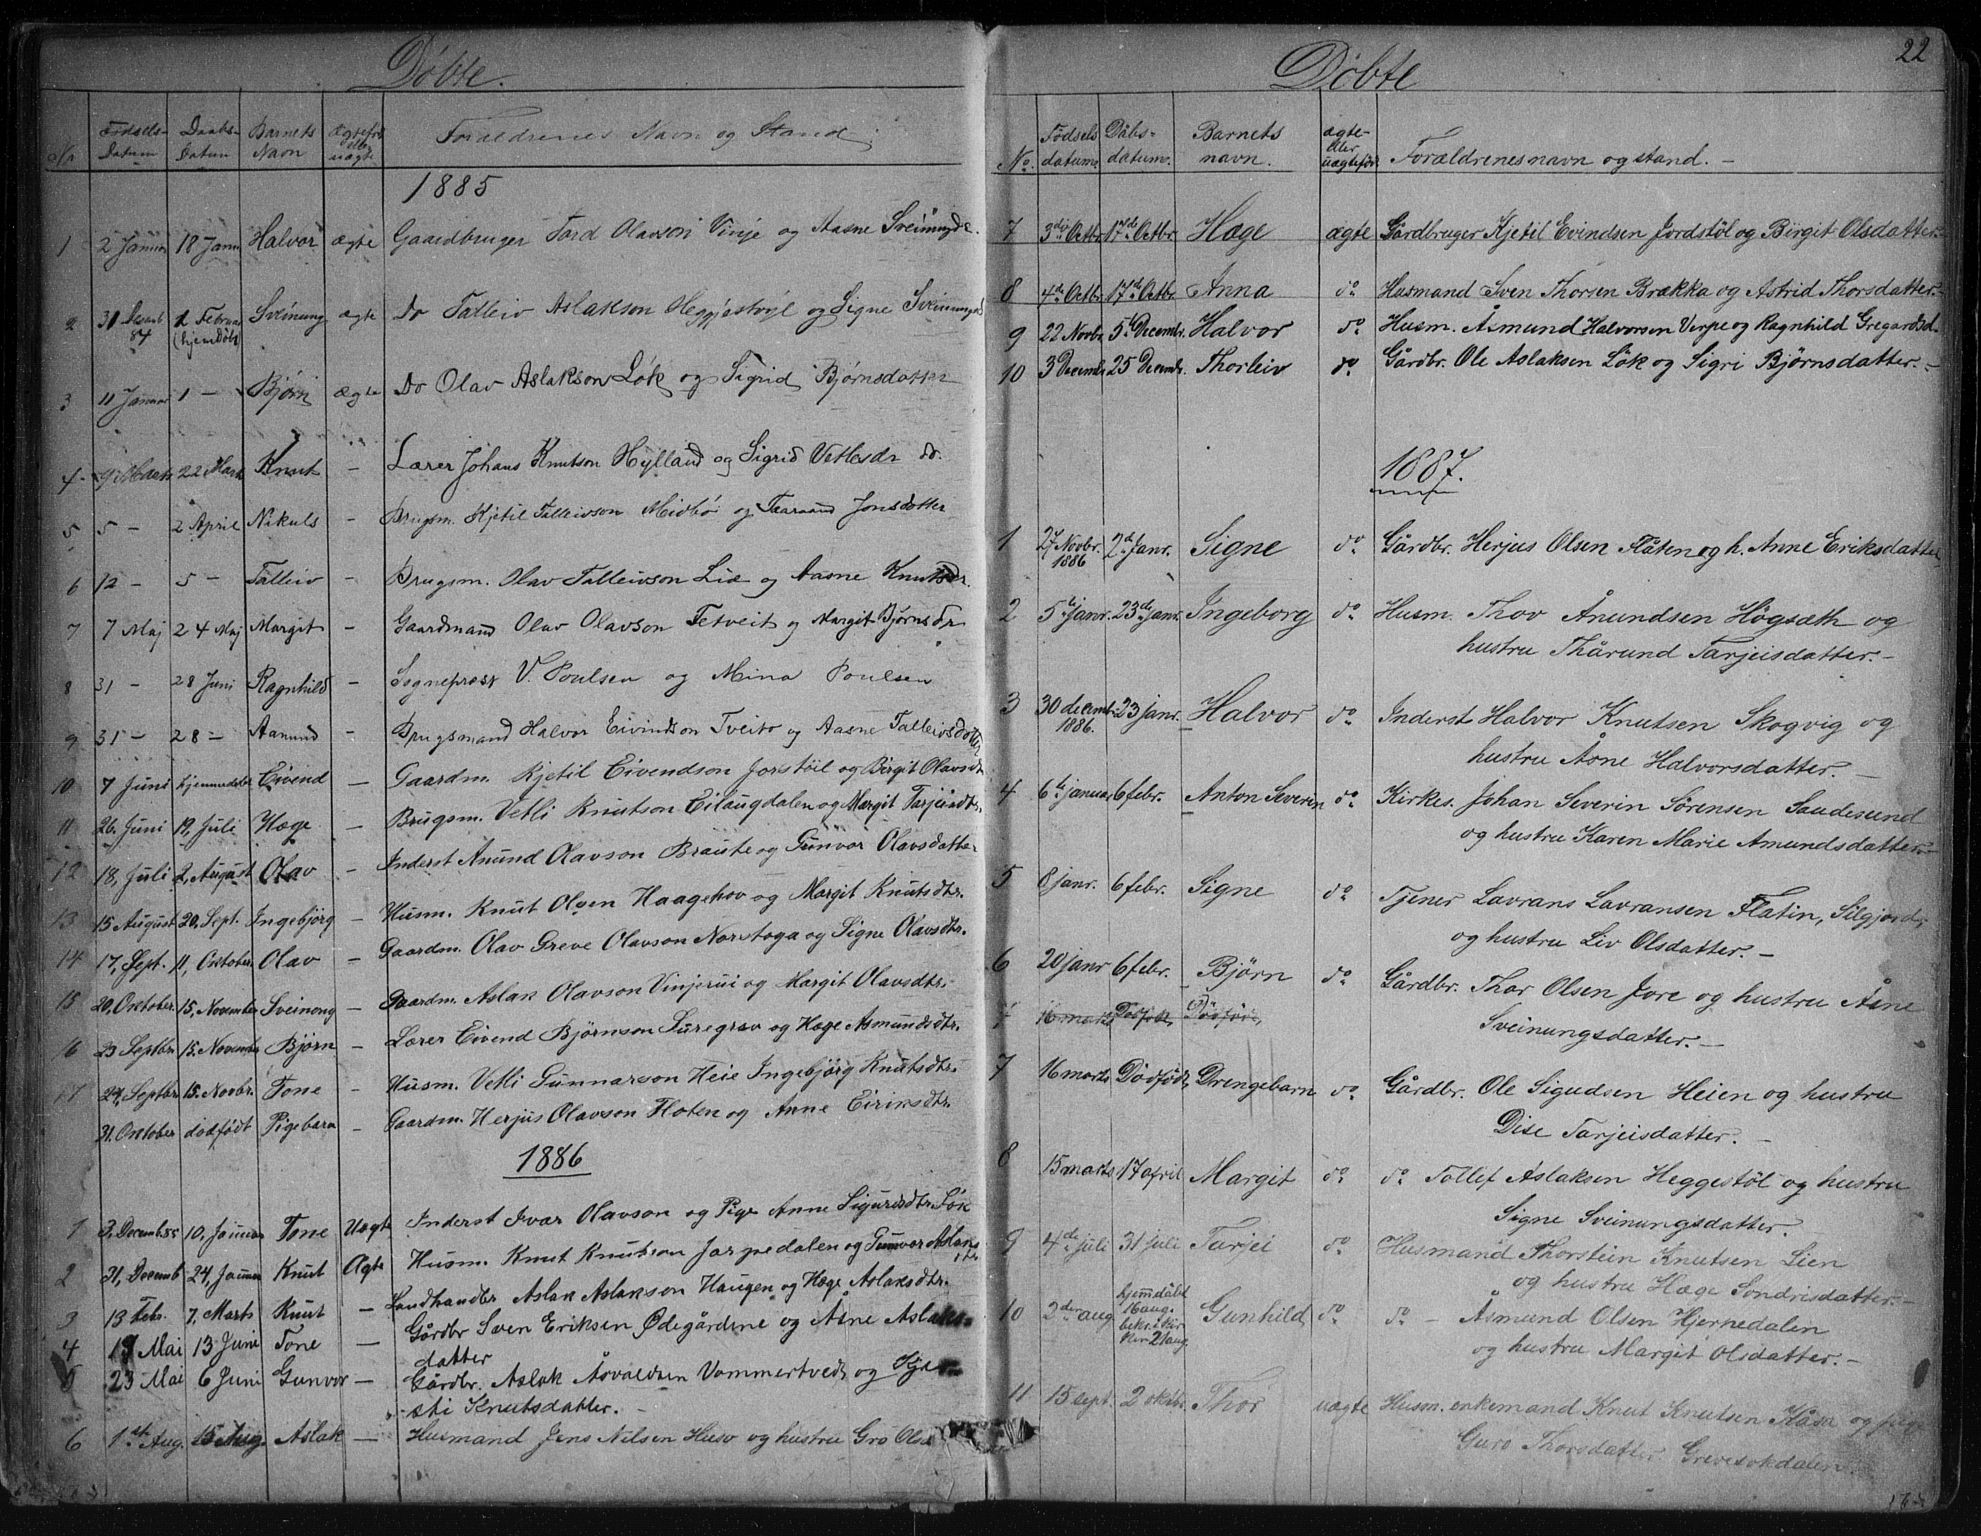 Döbte.
Nr Födsels-Datum Daabs-Datum Barnets Navn Ægtefød eller uægte Forældrenes Navn og Stand
1885
1 2 Januar 18 Janu Halvor ægte Gaardbruger Tord Olavson Vinje og Aasne Sveinungsd.
2 31 Decemb 84 1 Februar (hjemdöbt) Sveinung ægte Do Talleiv Aslakson Heggjestøyl og Signe Sveinungsd
3 11 Januar 1 — Bjørn ægte Do Olav Aslakson Løk og Sigrid Bjørnsdatter
4 9 Marts 22 Mars Knut — Lærer Johans Knutson Hylland og Sigrid Vetlesdr
5 5 — 2 April Nikuls — Brugsm. Kjetil Talleivson Midbö og Taaraand Jonsdotter
6 12 — 5 — Talleiv — Brugsm. Olav Talleivson Lid og Aasne Knutsdr.
7 7 Maj 24 Maj Margit — Gaardmand Olav Olavson Tetveit og Margit Bjørnsdr
8 31 — 28 Juni Ragnhild — Sogneprest V. Poulsen og Mina Poulsen
9 31 — 28 — Aanund — Brugsmand Halvor Eivindson Tveito og Aasne Talleivsdotter
10 7 Juni hjemmedøbt Eivend — Gaardm. Kjetil Eivendson Jorstöil og Birgit Olavsdt
11 26. Juni 19. Juli Hæge — Brugsm. Vetli Knutson Eilaugdalen og Margit Tarjeisdtr.
12 18, Juli 2, August Olav — Inderst Anund Olavson Braute og Gunvor Olavsdatter
13 15 August 20, Sept. Ingebjörg — Husm. Knut Olsen Haagehov og Margit Knutsdtr.
14 17, Sept. 11, Oktober Olav — Gaardm. Olav Greve Olavson Norstoga og Signe Olavsdtr.
15 20, Oktober 15, November Sveinong — Gaardm. Aslak Olavson Vinjerui og Margit Olavsdtr.
16 23 Septbr. 15. November Björn — Lærer Eivend Björnson Suregrav og Hæge Asmundsdtr.
17 24, Septbr 15. Novbr. Tone — Husm. Vetli Gunnarson Heie Ingebjörg Knutsdtr.
31. Oktober dödfödt Pigebarn — Gaardm. Herjus Olavson Floten og Anne Eiriksdtr.
1886
1 3, Decemb 85 10, Januar Tone Uægte Inderst Ivar Olavson og Pige Anne Sigursdtr Løk
2 31, Decemb 24, Januar Knut Ægte Husm. Knut Knutson Jarpedalen og Gunvor Aslaksdtr.
3 13 Feb. 7. Marts Knut — Landhandler Aslak Aslakson Haugen og Hæge Aslaksdtr.
4 19 Mai 13 Juni Tone — Gårdbr Sven Eriksen Ødegårdene og Åsne Aslaks-
datter
5 23 Mai 6 Juni Gunvor — Gårdbr. Aslak Åsvaldsen Vommertvedt og
sti Knutsdatter.
6 1st Aug. 15 Aug Aslak — Husmand Jens Nilsen Huso og hustru Gro Olsd
22
Döbte
No. Födsels datum. Dåbs-datum. Barnets navn. ægte- eller uægteför Forældrenes navn og stand. —
7 3die Octbr. 17de Octbr. Hæge ægte Gårdbruger Kjetil Evindsen Jordstöl og Birgit Olsdatter.—
8 4de Octbr. 17de Octbr. Anna do Husmand Sven Thorsen Brækka og Astrid Thorsdatter.—
9 22 Novbr. 5te Decembr. Halvor do Husm. Åsmund Halvorsen Verpe og Ragnhild Gregardsd.
10 3 Decembr. 25 Decembr. Thorleiv do Gårdbr. Ole Aslaksen Lök og Sigri Björnsdatter.—
1887.
1 27 Novbr. 1886 2d Janr. Signe do Gårdbr. Herjus Olsen Flåten og h. Anne Eriksdatter
2 5te janr. 23de janr. Ingeborg do Husm. Thov Ånundsen Högsæth og
hustru Thårund Tarjeisdatter.—
3 30 decemb 1886. 23 janr. Halvor do Inderst Halvor Knutsen Skogvig og
hustru Åsne Halvorsdatter.—
4 6te januar 6 febr. Anton Severin do Kirkes. Johan Severin Sörensen Saudesund
og hustru Karen Marie Amundsdatter.—
5 8 janr. 6 febr. Signe do Tjener Lavrans Lavransen Flatin, Silgjord,
og hustru Liv Olsdatter.—
6 20 janr 6 febr. Bjørn do Gårdbr. Thor Olsen Jore og hustru Åsne
Sveinungsdatter.—
7 16 marts Dödföd Dödföd
7 16 marts Dödfödt Drengebarn do Gårdbr. Ole Sigudsen Heien og hustru
Dise Tarjeisdatter.—
8 15 marts 17 april Margit do do Tollef Aslaksen Heggestöl og hustru
Signe Sveinungsdatter.
9 4de juli 31 juli Tarjei do Husmand Thorstein Knutsen Lien
og hustru Hæge Sondrisdatter.—
10 2den aug. hjemdåbt 16 aug. bekr. i kirken 21 aug. Gunhild do do — Åsmund Olsen Hjernedalen
og hustru Margit Olsdatter.—
11 15 sept. 2 oktbr. Thor uægte Husm. enkemand Knut Knutsen Kåsa og pige
Guro Thorsdatter Grevesokdalen.